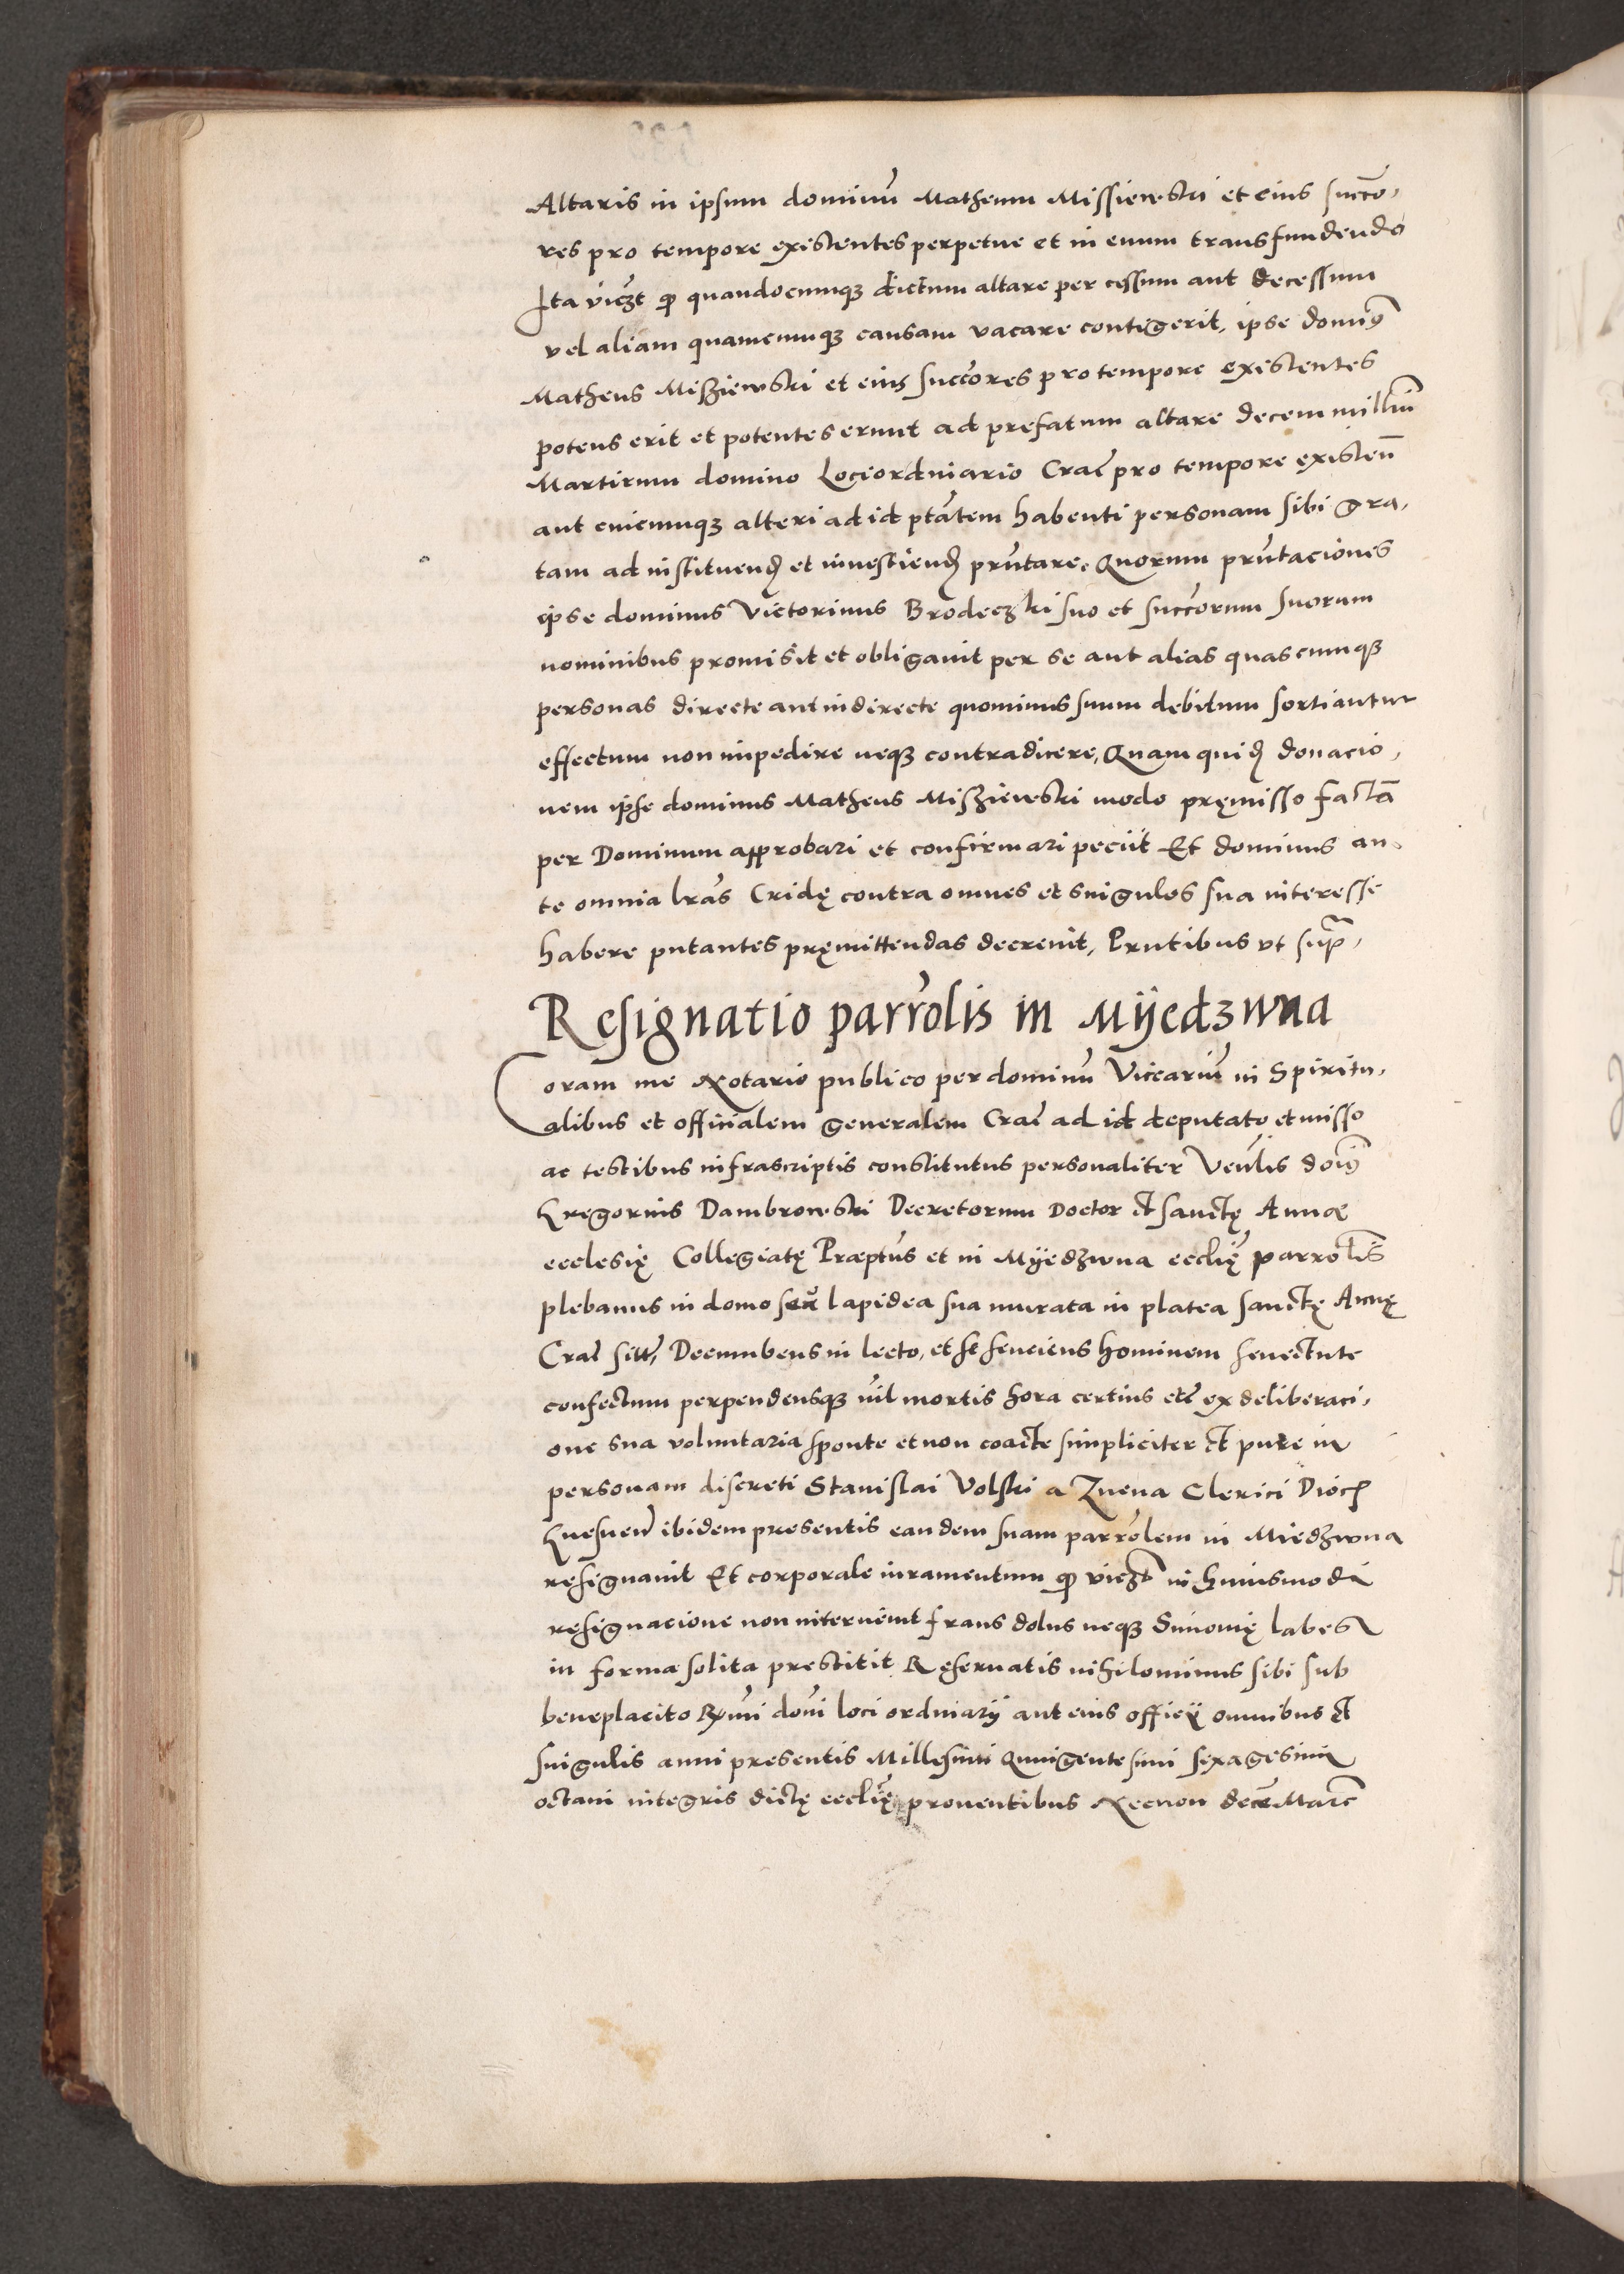 Altaris in ipsum dominū Matheum Missiewski et eius succo,
res pro tempore existentes perpetue et in euum transfundendo
Ita viczt qȝ quandocumqȝ dictum altare per cessum aut decessum
vel aliam quamcumqȝ causam vacare contigerit, ipse domin9
Matheus Misziewski et eius succores pro tempore existentes
potens erit et potentes erunt ad prefatum altare decem milliū
Martirum domino Lociordinario Crač pro tempore existen̄
aut cuicumqȝ alteri ad id ptātem habenti personam sibi gra,
tam ad instituend et inuestiend prūtare. Quorum prūtaciones
ipse dominus Victorinus Brodeczki suo et succorum suorum
nominibus promisit et obligauit per se aut alias quascumqȝ
personas directe aut indirecte quominus suum debitum sortiantur
effectum non impedire neqȝ contradicere, Quam quid donacio,
nem ipse dominus Matheus Misziewski modo pręmisso factā
per Dominum approbari et confirmari peciit Et dominus an,
te omnia lrās Cridę contra omnes et singulos sua interesse
habere putantes pręmittendas decreuit, Prntibus vt supra,
Resignatio parrolis in Mijedzwna
Coram me Notario publico per dominū Vicearium in Spiritu,
alibus et officialem generalem Crač ad id deputato et misso
ac testibus infrascriptis constitutus personaliter Venlis doın9
Gregorius Dambrowski Decretorum Doctor et sanctę Annæ
ecclesię Collegiatę Præptus et in Mijedzwna ecclię parrolis
plebanus in domo seu lapidea sua murata in platea sanctę Annę
Crač sitt, Decumbens in lecto, et se senciens hominem senectute
confectum perpendensqȝ nil mortis hora certius etč ex deliberaci,
one sua voluntaria sponte et non coacte simpliciter et pure in
personam discreti Stanislai Volski a Znena Clerici Dioc
Gnesnen ibidem presentis eandem suam parrolem in Miedzwna
resignauit Et corporale iuramentum qȝ viczt in huiusmodi
resignacione non interuenit fraus dolus neqȝ Simonię labes
in forma solita prestitit Reseruatis nihilominus sibi sub
beneplacito Rmi doni loci ordinarij aut eius officij omnibus et
singulis anni presentis Millesimi Quingentesimi sexagesimi
octaui integris dictę ecclię prouentibus Necnon decē Marč